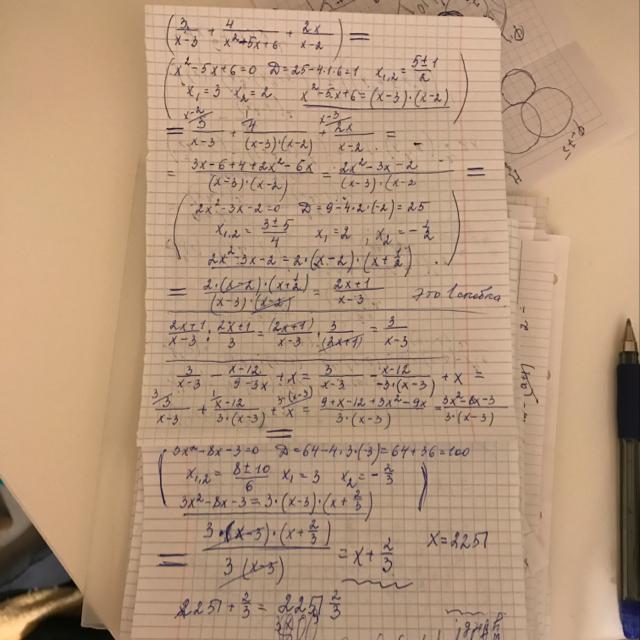 (3/(x-3) + 4/(x²+5x+6) + 2x/(x-2)) =
(x²-5x+6=0 D=25-4·1·6=1 x₁,₂ = (5±1)/2
x₁=3 x₂=2 x²-5x+6=(x-3)·(x-2))
= 3/(x-3) + 4/((x-3)·(x-2)) + 2x/(x-2) =
= (3x-6+4+2x²-6x)/((x-3)·(x-2)) = (2x²-3x-2)/((x-3)·(x-2 =
(2x²-3x-2=0 D=9-4·2·(-2)=25
x₁,₂ = (3±5)/4 x₁=2 , x₂=-1/2
2x²-3x-2=2·(x-2)·(x+1/2))
= 2·(x-2)·(x+1/2)/((x-3)·(x-2)) = (2x+1)/(x-3) Это 1 скобка
(2x+1)/(x-3) : (2x+1)/3 = (2x+1)/(x-3) · 3/(2x+1) = 3/(x-3)
3/(x-3) - (x-12)/(9-3x) + x = 3/(x-3) - (x-12)/(-3·(x-3)) + x =
3/(x-3) + (x-12)/(3·(x-3)) + x = (9+x-12+3x²-9x)/(3·(x-3)) = (3x²-8x-3)/(3·(x-3))
=
(3x²-8x-3=0 D=64-4·3·(-3)=64+36=100
x₁,₂ = (8±10)/6 x₁=3 x₂=-2/3
3x²-8x-3=3·(x-3)·(x+2/3))
= 3·(x-3)·(x+2/3)/(3·(x-3)) = x+2/3 x=2251
2251+2/3 = 2251 2/3